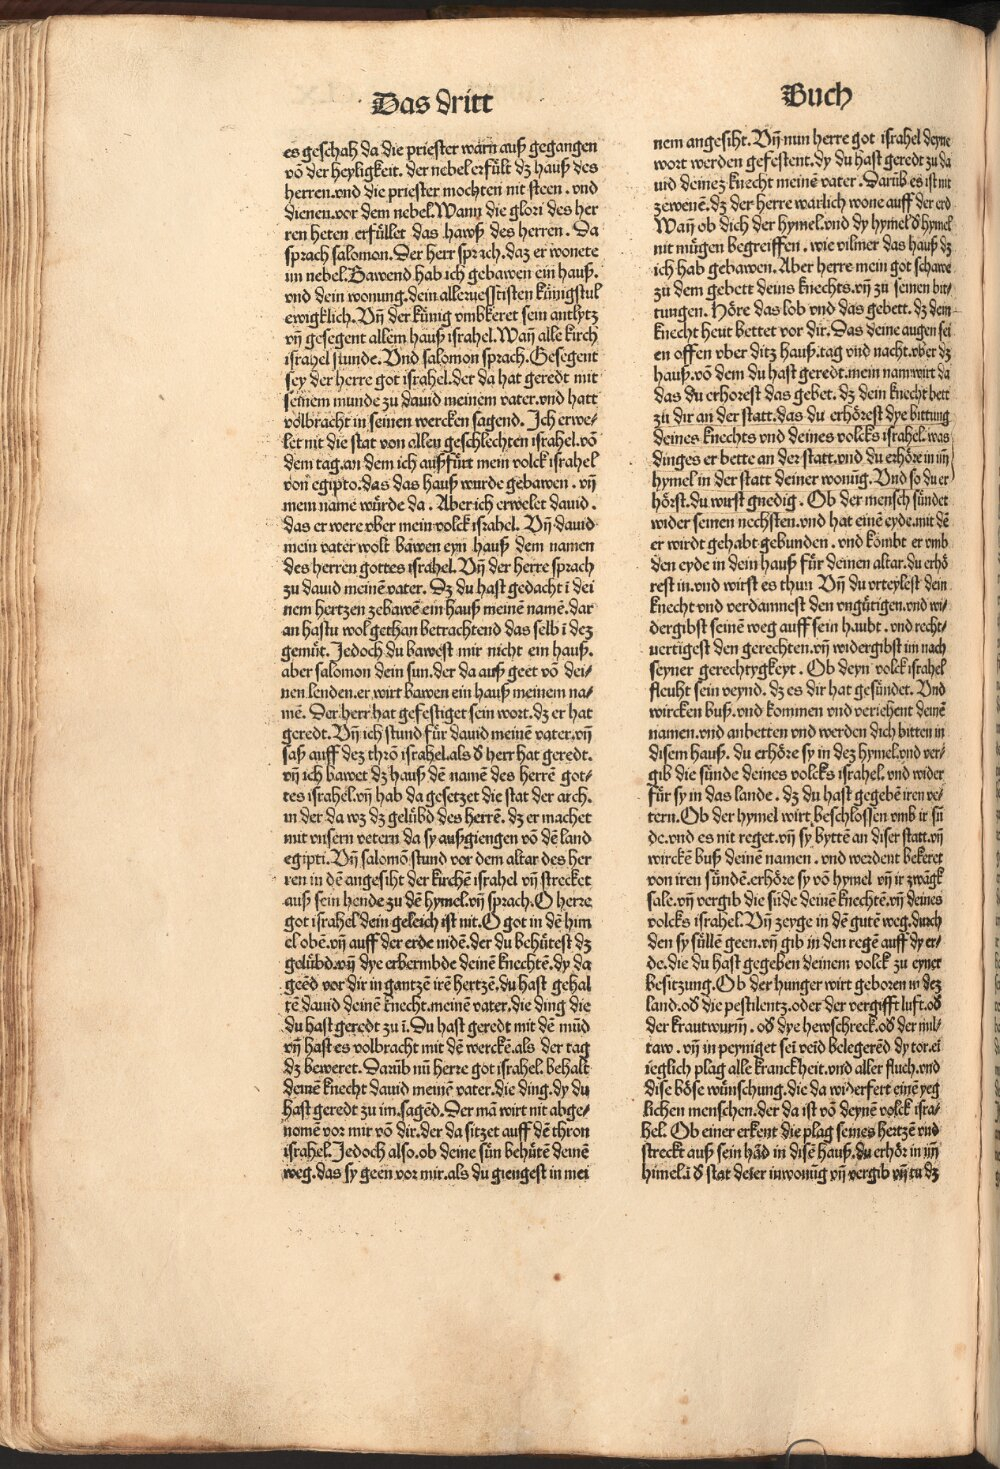 Das dritt
Buch
es geschah da die priester warn auß gegangen
võ der heyligkeit. der nebel erfült dz hauß des
herren.vnd die priester mochten nit steen. vnd
dienen.vor dem nebel.Wann die glori des her
ren heten erfüllet das hawß des herren. Da
sprach salomon.Der herr sprach.daz er wonete
im nebel.Bawend hab ich gebawen ein hauß.
vnd dein wonung.dein allervesstisten künigstul
ewigklich. Vñ der künig vmbkeret sein antlytz
vñ gesegent allem hauß israhel.Wañ alle kirch
israhel stunde. Vnd salomon sprach.Gesegent
sey der herre got israhel.der da hat geredt mit
seinem munde zu dauid meinem vater.vnd hatt
volbracht in seinen wercken sagend. Ich erwe/
let nit die stat von allen geschlechten israhel.võ
dem tag.an dem ich außfürt mein volck israhel
von egipto.das das hauß wurde gebawen. vñ
mein name würde da. Aber ich erwelet dauid.
das er were vber mein volck israhel. Vñ dauid
mein vater wolt bawen eyn hauß dem namen
des herren gottes israhel.Vñ der herre sprach
zu dauid meinẽ vater. Dz du hast gedacht ĩ dei
nem hertzen zebawẽ ein hauß meinẽ namẽ.dar
an hastu wol gethan betrachtend das selb ĩ dez
gemüt. Jedoch du bawest mir nicht ein hauß.
aber salomon dein sun.der da auß geet võ dei/
nen lenden.er wirt bawen ein hauß meinem na/
mẽ. Der herr hat gefestiget sein wort.dz er hat
geredt.Vñ ich stund für dauid meinẽ vater.vñ
saß auff dez thrõ israhel.als d herr hat geredt.
vñ ich bawet dz hauß dẽ namẽ des herrẽ got/
tes israhel.vñ hab da gesetzet die stat der arch.
in der da wz dz gelübd des herrẽ. dz er machet
mit vnsern vetern da sy außgiengen võ dẽ land
egipti. Vñ salomõ stund vor dem altar des her
ren in dẽ angesiht der kirchẽ israhel vñ strecket
auß sein hende zu dẽ hymel.vñ sprach.O herre
got israhel dein geleich ist nit.O got in dẽ him
el obẽ.vñ auff der erde nidẽ.der du behütest dz
gelübd.vñ dye erbermbde deinẽ knechtẽ.dy da
geẽd vor dir in gantzẽ irẽ hertzẽ.du hast gehal
tẽ dauid deinẽ knecht.meinẽ vater.die ding die
du hast geredt zu ĩ. Du hast geredt mit dẽ mũd
vñ hast es volbracht mit dẽ werckẽ.als der tag
dz beweret. Darũb nũ herre got israhel. behalt
deinẽ knecht dauid meinẽ vater.die ding.dy du
hast geredt zu im.sagẽd. Der mã wirt nit abge/
nomẽ vor mir võ dir.der da sitzet auff dẽ thron
israhel. Jedoch also.ob deine sün behütẽ deinẽ
weg.das sy geen vor mir.als du giengest in mei
nem angesiht. Vñ nun herre got israhel deyne
wort werden gefestent.dy du hast geredt zu da
uid deinez knecht meinẽ vater.Darũb es ist nit
zewenẽ.dz der herre warlich wone auff der erd
Wañ ob dich der hymel.vnd dy hymel d hymel
nit mügen begreiffen. wie vilmer das hauß dz
ich hab gebawen. Aber herre mein got schawe
zu dem gebett deins knechts.vñ zu seinen bit/
tungen. Höre das lob vnd das gebett. dz dein
knecht heut bettet vor dir. Das deine augen sei
en offen vber ditz hauß.tag vnd nacht.vber dz
hauß.võ dem du hast geredt.mein nam wirt da
das du erhorest das gebet. dz dein knecht bett
zu dir an der statt.das du erhörest dye bittung
deines knechts vnd deines volcks israhel.was
dinges er bette an der statt.vnd du erhöre in im
hymel in der statt deiner wonũg. Vnd so du er
hörst.du wurst gnedig. Ob der mensch sündet
wider seinen nechsten.vnd hat einẽ eyde.mit dẽ
er wirdt gehabt gebunden. vnd kombt er vmb
den eyde in dein hauß für deinen altar.du erhö
rest in.vnd wirst es thun Vñ du vrteylest dein
knecht vnd verdamnest den vngütigen.vnd wi/
dergibst seinẽ weg auff sein haubt. vnd recht/
uertigest den gerechten.vñ widergibst im nach
seyner gerechtygkeyt. Ob deyn volck israhel
fleuht sein veynd. dz es dir hat gesündet. Vnd
wircken buß.vnd kommen vnd veriehent deinẽ
namen.vnd anbetten vnd werden dich bitten in
disem hauß. du erhöre sy in dez hymel.vnd ver/
gib die sünde deines volcks israhel. vnd wider
für sy in das lande. dz du hast gegebẽ iren ve/
tern.Ob der hymel wirt beschlossen vmb ir sü
de.vnd es nit reget.vñ sy byttẽ an diser statt.vñ
wirckẽ buß deinẽ namen. vnd werdent bekeret
von iren sündẽ.erhöre sy võ hymel vñ ir zwãgk
sale.vñ vergib die süde deinẽ knechtẽ.vñ deines
volcks israhel. Vñ zeyge in dẽ gutẽ weg.durch
den sy süllẽ geen.vñ gib in den regẽ auff dy er/
de.die du hast gegeben deinem volck zu eyner
besitzung.Ob der hunger wirt geboren in dez
land.od die pestilentz.oder der vergifft luft.od
der krautwurm. od dye hewschreck.od der mil/
taw. vñ in peyniget sei veid belegerẽd dy tor.ei
ieglich plag alle kranckheit.vnd aller fluch.vnd
dise böse wünschung.die da widerfert einẽ yeg
lichen menschen.der da ist võ deynẽ volck isra/
hel. Ob einer erkent die plag seines hertzẽ vnd
streckt auß sein hãd in disẽ hauß.du erhör in im
himel.ĩ d stat deier inwonũg vñ vergib vñ tu dz